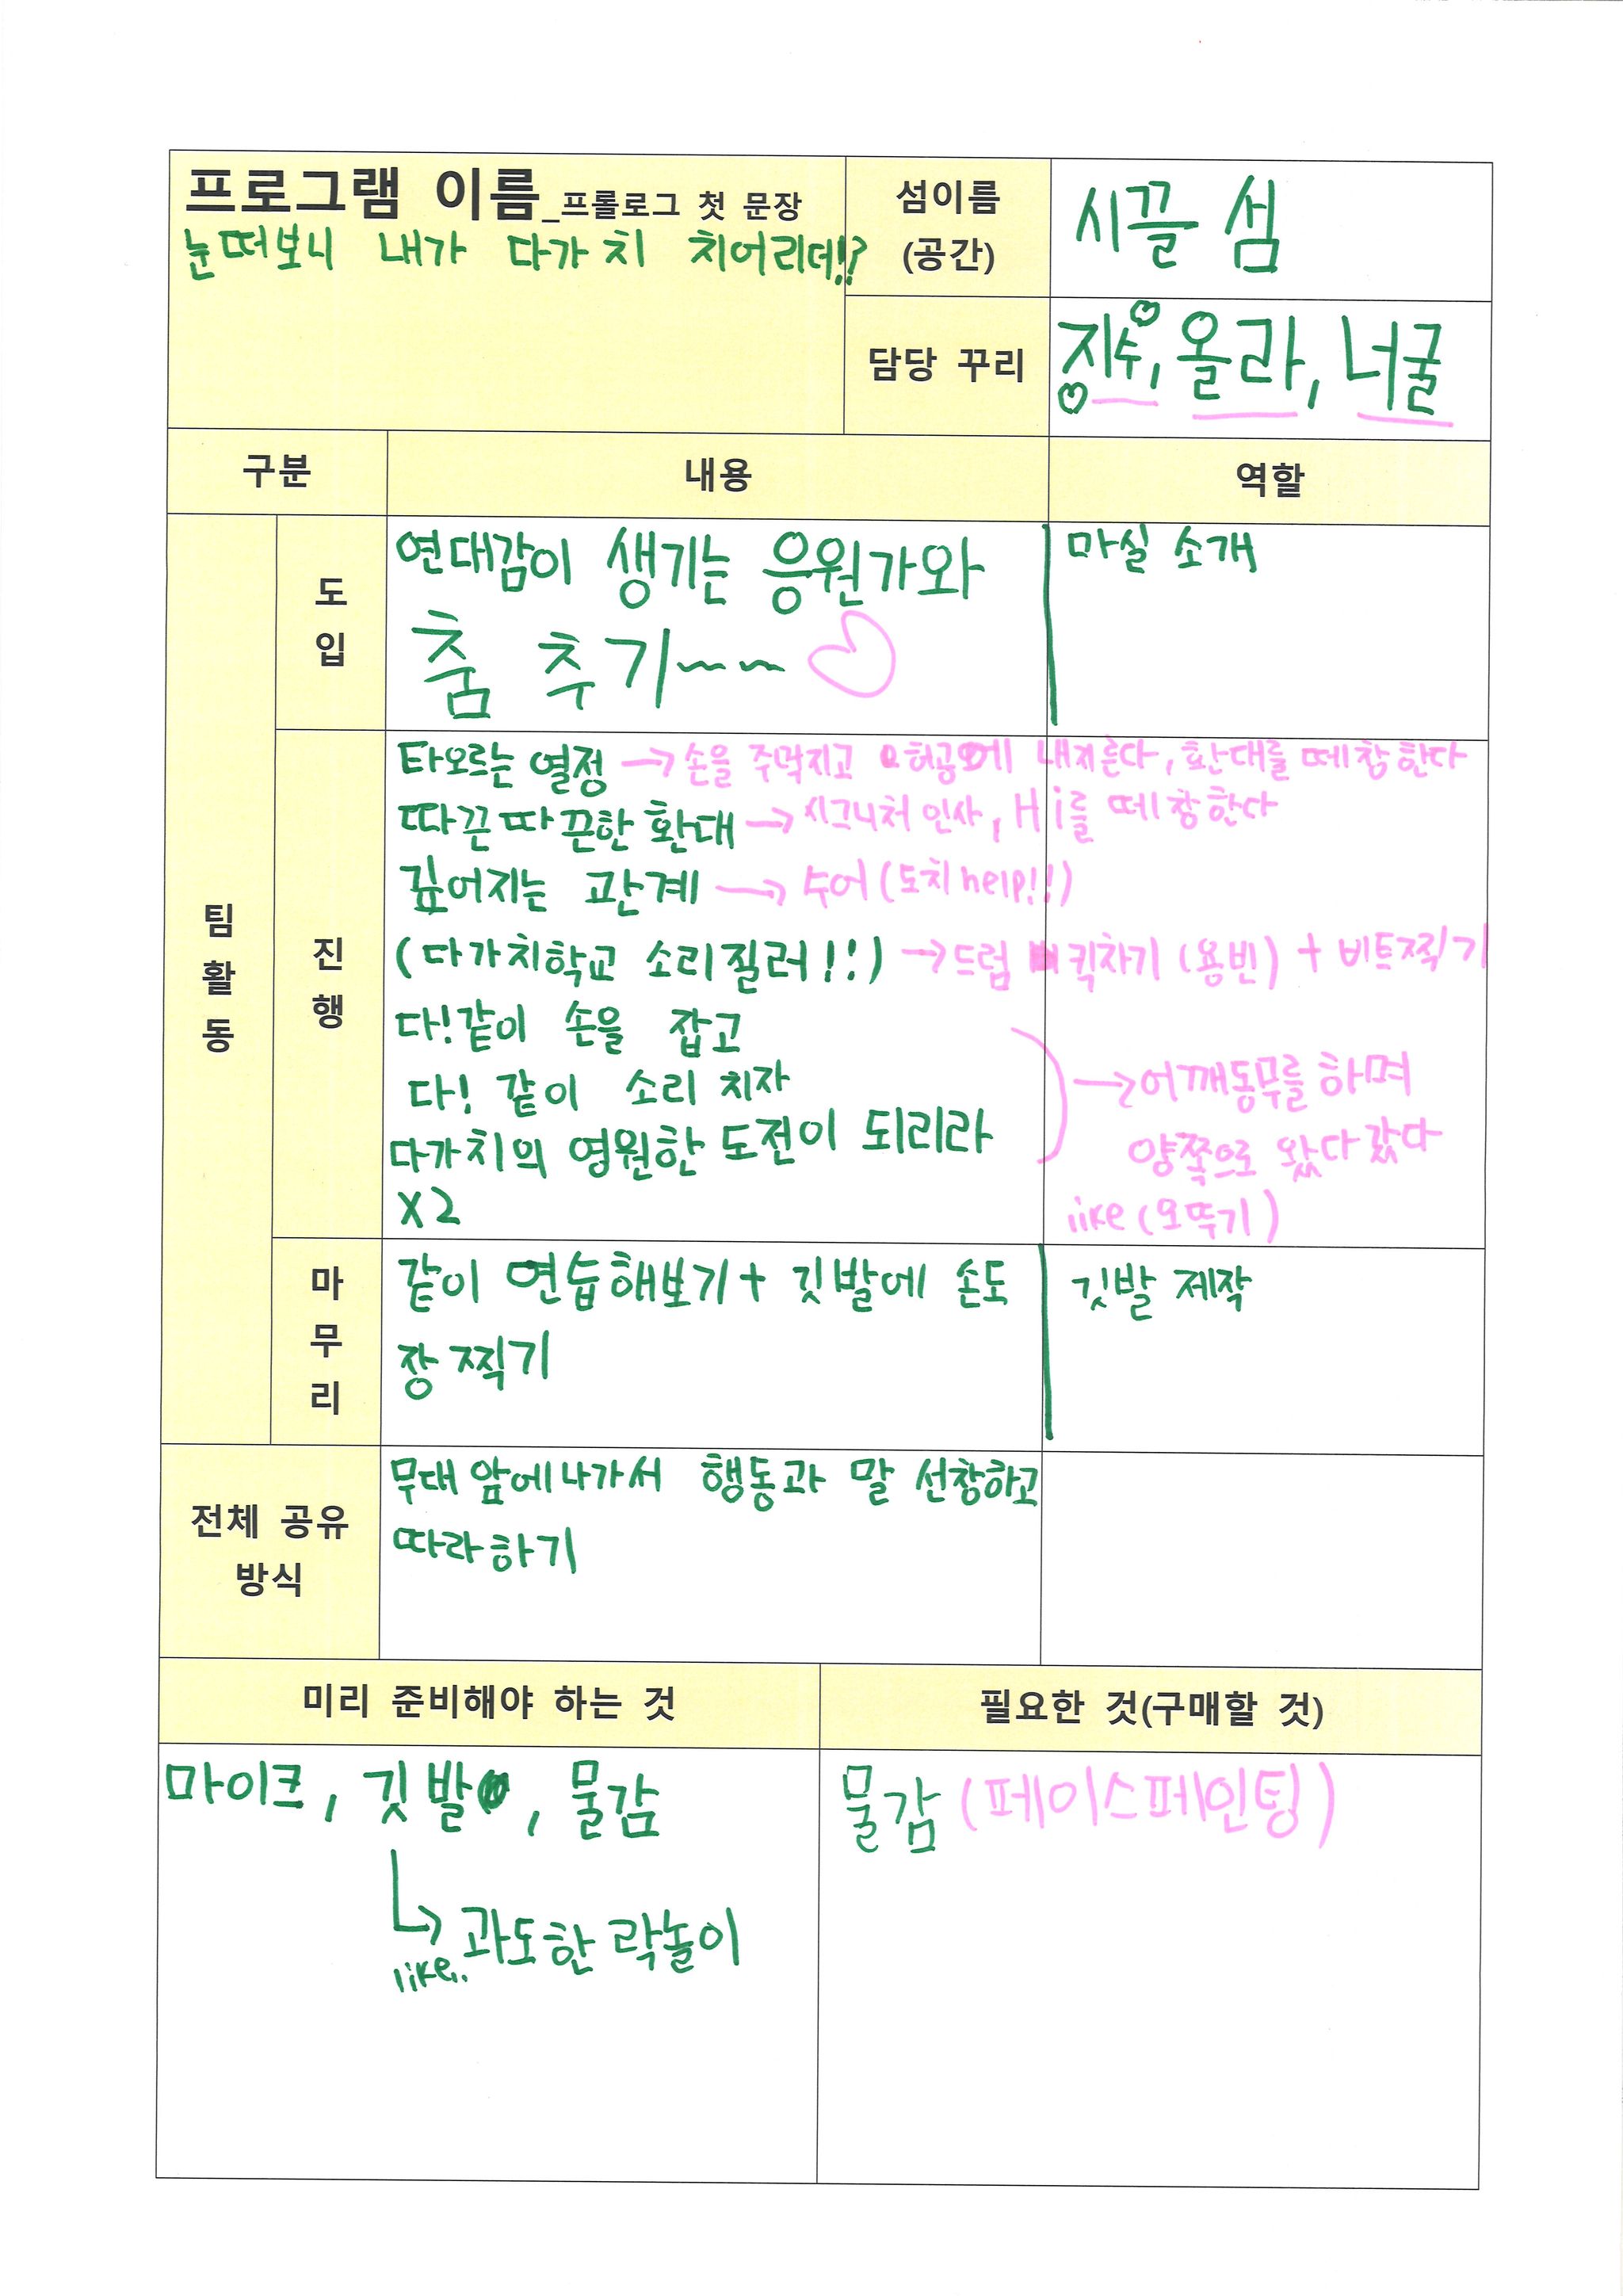 프로그램 이름_프롤로그 첫 문장
눈떠보니 내가 다가치 치어리더!?
섬이름
(공간)
시끌 섬
담당 꾸리
지수, 올라, 너굴
구분
내용
역할
팀활동
도입
연대감이 생기는 응원가와
춤 추기~~
마실 소개
진행
타오르는 열정 → 손을 주먹지고 허공에 내지른다, 환대를 떼창한다
따끈따끈한 환대 → 시그니처 인사, Hi를 떼창한다
깊어지는 관계 → 수어 (도치 help!!)
(다가치학교 소리질러!!) → 드럼 킥차기 (용빈) + 비트찍기
다!같이 손을 잡고
다! 같이 소리 치자
다가치의 영원한 도전이 되리라
X2
→ 어깨동무를 하며
양쪽으로 왔다 갔다
like (오뚜기)
마무리
같이 연습해보기 + 깃발에 손도
장 찍기
깃발 제작
전체 공유
방식
무대 앞에 나가서 행동과 말 선창하고
따라하기
미리 준비해야 하는 것
필요한 것(구매할 것)
마이크, 깃발, 물감
like.. 과도한 락놀이
물감 (페이스페인팅)